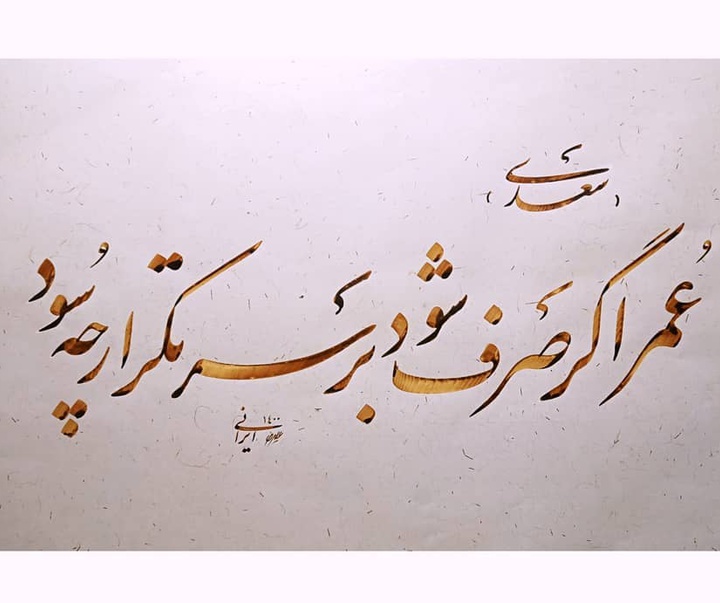 (سعدی)
عُمر اگر صَرف شود بر سر تکرار چه سُود
ایرانی ۱۴۰۰